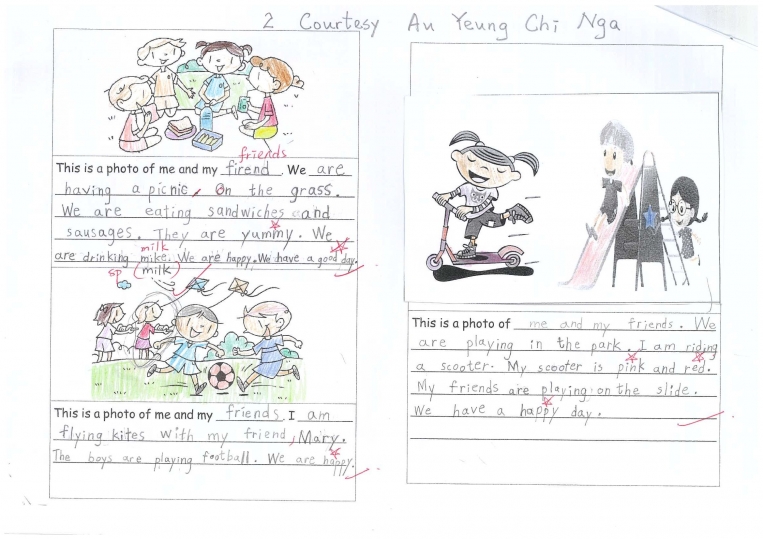 2 Courtesy Au Yeung Chi Nga
friends
This is a photo of me and my firend. We are
having a picnic, on the grass.
We are eating sandwiches and
sausages. They are yummy. We
milk
are drinking mike. We are happy. We have a good day.
sp (milk)
This is a photo of me and my friends. I am
flying kites with my friend, Mary.
The boys are playing football. We are happy.
This is a photo of me and my friends. We
are playing in the park. I am riding
a scooter. My scooter is pink and red.
My friends are playing on the slide.
We have a happy day.